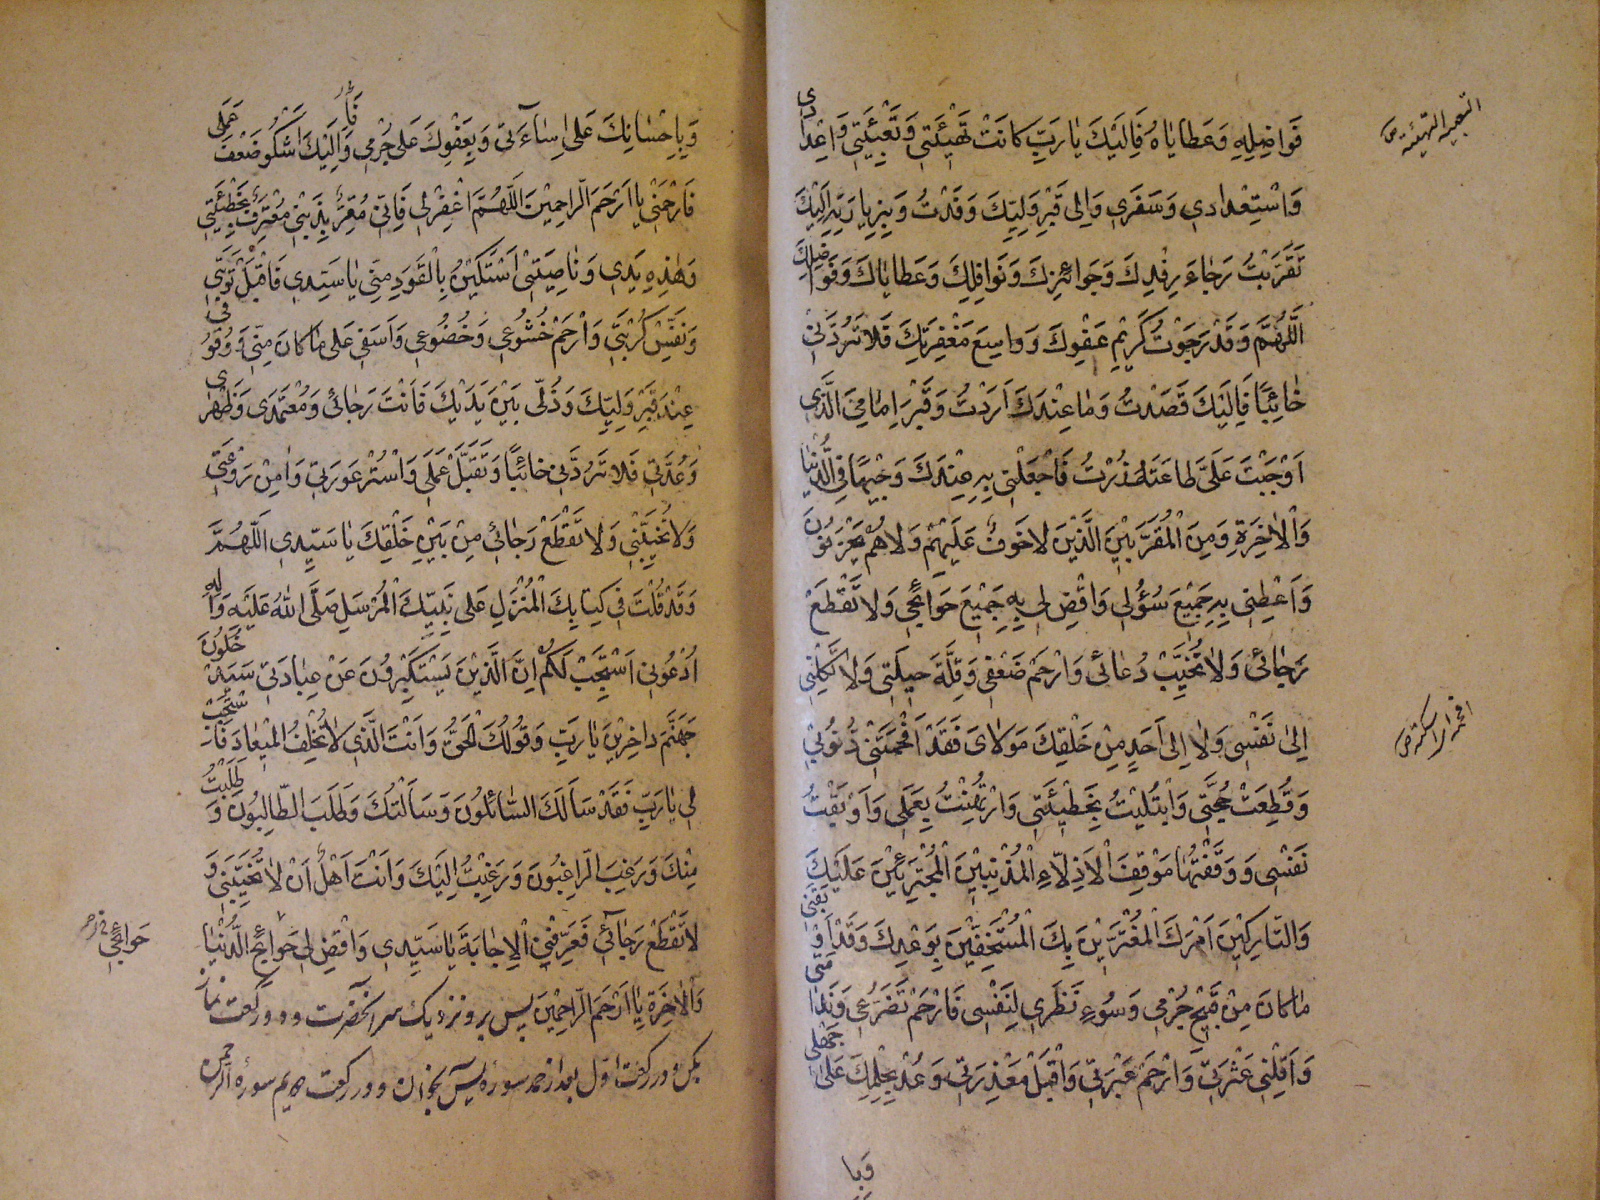 فَوَاضِلِهِ وَعَطَایَاهُ فَاِلَیْكَ یَا رَبِّ كَانَتْ تَهْیِئَتِي وَتَعْبِئَتِي وَاِعْدَادِي
التعبیه التهیئة ص
وَاسْتِعْدَادِي وَسَفَرِي وَاِلٰی قَبْرِ وَلِیِّكَ وَفَدْتُ وَبِزِیَارَتِهِ اِلَیْكَ
تَقَرَّبْتُ رَجَاءَ رِفْدِكَ وَجَوَائِزِكَ وَنَوَافِلِكَ وَعَطَایَاكَ وَفَوَاضِلِكَ
اَللّٰهُمَّ وَقَدْ رَجَوْتُ كَرِیْمَ عَفْوِكَ وَوَاسِعَ مَغْفِرَتِكَ فَلَا تَرُدَّنِيْ
خَائِبًا فَاِلَیْكَ قَصَدْتُ وَمَا عِنْدَكَ اَرَدْتُ وَقَبْرَ اِمَامِيَ الَّذِي
اَوْجَبْتَ عَلَيَّ طَاعَتَهُ زُرْتُ فَاجْعَلْنِي بِهِ عِنْدَكَ وَجِیْهًا فِي الدُّنْیَا
وَالْاٰخِرَةِ وَمِنَ الْمُقَرَّبِیْنَ الَّذِیْنَ لَا خَوْفٌ عَلَیْهِمْ وَلَا هُمْ یَحْزَنُونَ
وَاَعْطِنِي بِهِ جَمِیْعَ سُؤْلِي وَاقْضِ لِي بِهِ جَمِیْعَ حَوَائِجِي وَلَا تَقْطَعْ
رَجَائِي وَلَا تُخَیِّبْ دُعَائِي وَارْحَمْ ضَعْفِي وَقِلَّةَ حِیلَتِي وَلَا تَكِلْنِي
اِلٰی نَفْسِي وَلَا اِلٰی اَحَدٍ مِنْ خَلْقِكَ مَوْلَايَ فَقَدْ اَفْحَمَتْنِي ذُنُوْبِي
افحمته اسكته ص
وَقُطِعَتْ حُجَّتِي وَابْتُلِیْتُ بِخَطِیْئَتِي وَارْتُهِنْتُ بِعَمَلِي وَاَوْبَقْتُ
نَفْسِي وَوَقَفْتُهَا مَوْقِفَ الْاَذِلَّاءِ الْمُذْنِبِیْنَ الْمُجْتَرِئِیْنَ عَلَیْكَ
وَالتَّارِكِیْنَ اَمْرَكَ الْمُغْتَرِّیْنَ بِكَ الْمُسْتَخِفِّیْنَ بِوَعْدِكَ وَقَدْ اَوْبَقَنِي
مَا كَانَ مِنْ قَبِیْحِ جُرْمِي وَسُوْءِ نَظَرِي لِنَفْسِي فَارْحَمْ تَضَرُّعِي وَنَدَامَتِي
وَاَقِلْنِي عَثْرَتِي وَارْحَمْ عَبْرَتِي وَاقْبَلْ مَعْذِرَتِي وَعُدْ بِحِلْمِكَ عَلٰی جَهْلِي
وَبِا
وَبِاِحْسَانِكَ عَلٰی اِسَاءَتِي وَبِعَفْوِكَ عَلٰی جُرْمِي وَاِلَیْكَ اَشْكُو ضَعْفَ عَمَلِي
فَارْحَمْنِي یَا اَرْحَمَ الرَّاحِمِیْنَ اَللّٰهُمَّ اغْفِرْ لِي فَاِنِّي مُقِرٌّ بِذَنْبِيْ مُعْتَرِفٌ بِخَطِیْئَتِي
وَهٰذِهِ یَدِي وَنَاصِیَتِيْ اَسْتَكِیْنُ بِالْقَوَدِ مِنِّي یَا سَیِّدِي فَاقْبَلْ تَوْبَتِي
وَنَفِّسْ كُرْبَتِي وَارْحَمْ خُشُوْعِي وَخُضُوْعِي وَاَسَفِي عَلٰی مَا كَانَ مِنِّي وَوُقُوْفِي
عِنْدَ قَبْرِ وَلِیِّكَ وَذُلِّي بَیْنَ یَدَیْكَ فَاَنْتَ رَجَائِي وَمُعْتَمَدِي وَظَهْرِي
وَعُدَّتِي فَلَا تَرُدَّنِي خَائِبًا وَتَقَبَّلْ عَمَلِي وَاسْتُرْ عَوْرَتِي وَاٰمِنْ رَوْعَتِي
وَلَا تُخَیِّبْنِي وَلَا تَقْطَعْ رَجَائِي مِنْ بَیْنِ خَلْقِكَ یَا سَیِّدِي اَللّٰهُمَّ
وَقَدْ قُلْتَ فِي كِتَابِكَ الْمُنْزَلِ عَلٰی نَبِیِّكَ الْمُرْسَلِ صَلَّی اللّٰهُ عَلَیْهِ وَاٰلِهِ
اُدْعُوْنِي اَسْتَجِبْ لَكُمْ اِنَّ الَّذِیْنَ یَسْتَكْبِرُوْنَ عَنْ عِبَادَتِي سَیَدْخُلُوْنَ
جَهَنَّمَ دَاخِرِیْنَ یَا رَبِّ وَقَوْلُكَ الْحَقُّ وَاَنْتَ الَّذِي لَا تُخْلِفُ الْمِیْعَادَ فَاسْتَجِبْ
لِي یَا رَبِّ فَقَدْ سَاَلَكَ السَّائِلُوْنَ وَسَاَلْتُكَ وَطَلَبَ الطَّالِبُوْنَ وَطَلَبْتُ
مِنْكَ وَرَغِبَ الرَّاغِبُوْنَ وَرَغِبْتُ اِلَیْكَ وَاَنْتَ اَهْلٌ اَنْ لَا تُخَیِّبَنِي وَ
لَا تَقْطَعْ رَجَائِي فَعَرِّفْنِي الْاِجَابَةَ یَا سَیِّدِي وَاقْضِ لِي حَوَائِجَ الدُّنْیَا
حَوَائِجِي
وَالْاٰخِرَةِ یَا اَرْحَمَ الرَّاحِمِیْنَ پس برو نزدیك سر آنحضرت و دو ركعت نماز
بكن و در ركعت اول بعد از حمد سورهٔ یس بخوان و در ركعت دویم سورهٔ الرحمن